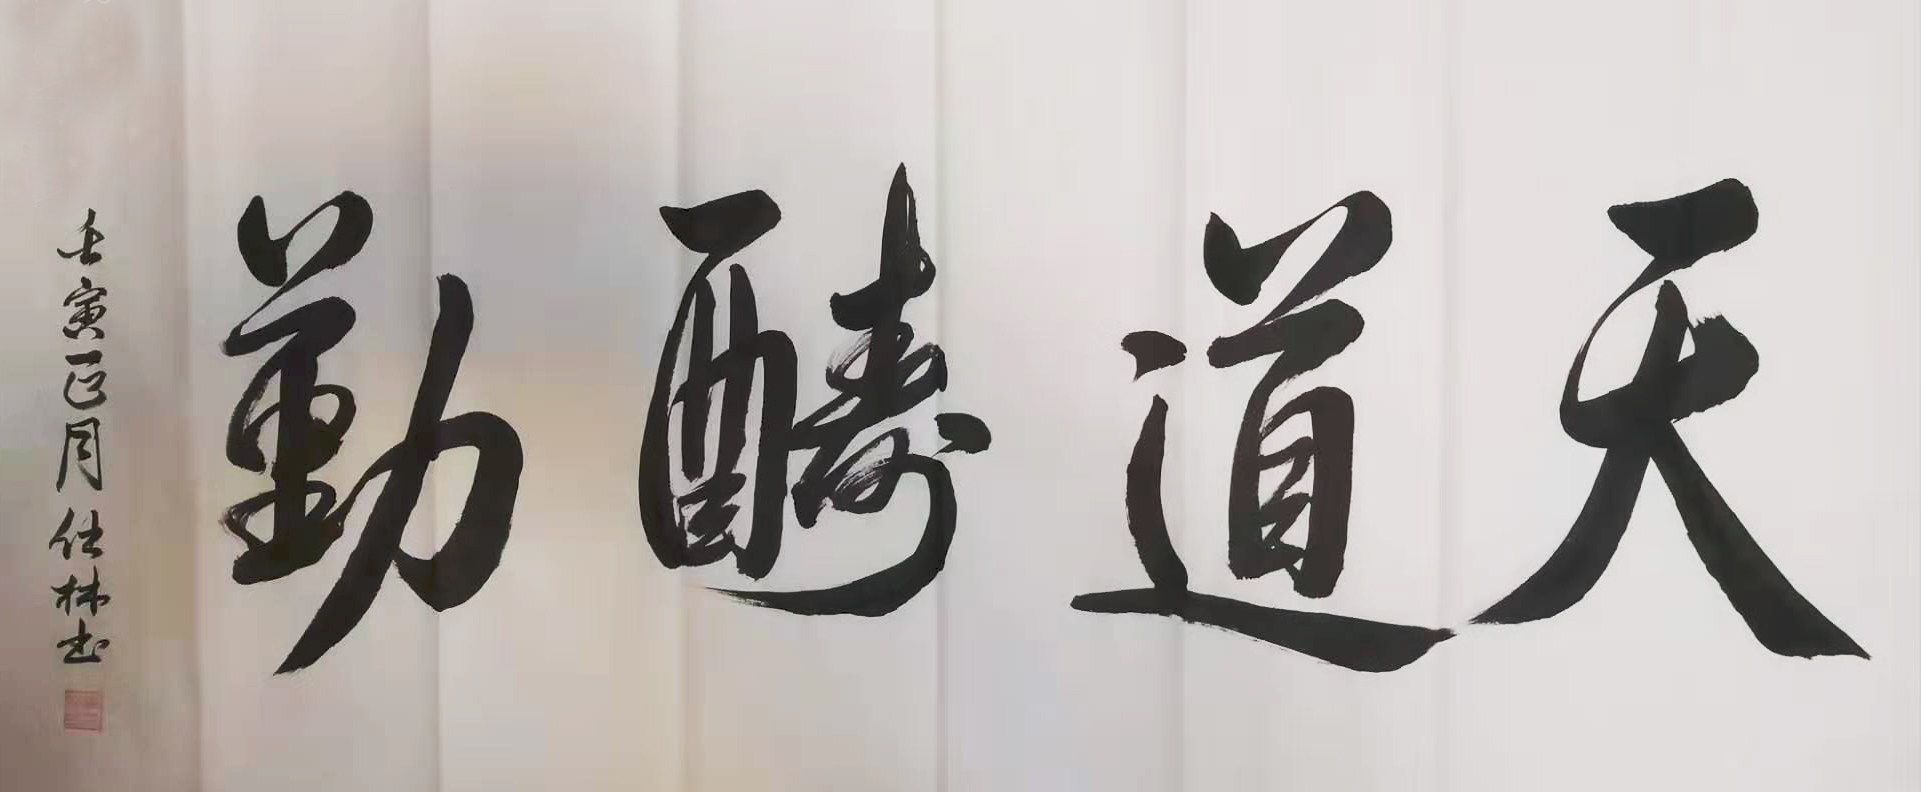 天道酬勤
壬寅正月仕林书